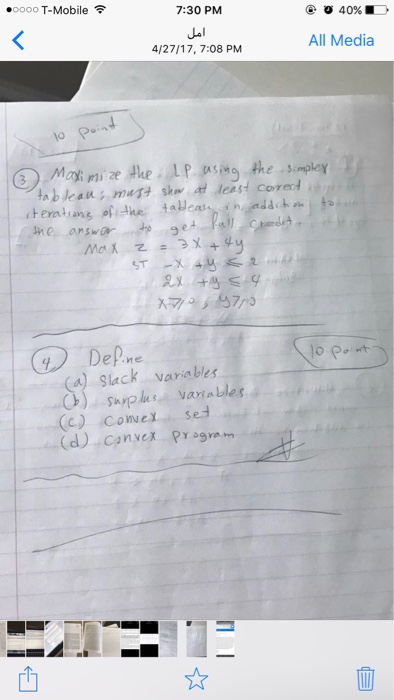 T-Mobile 7:30 PM 40%
امل
4/27/17, 7:08 PM
All Media
10 point
3 Maximize the LP using the simplex
tableau; must show at least correct
iterations of the tableau in addition to
the answer to get full credit.
Max Z = 3X + 4y
ST -X + y ≤ 2
2X + y ≤ 4
X ≥ 0, y ≥ 0
4 Define 10 point
(a) Slack variables
(b) surplus variables
(c) convex set
(d) convex program